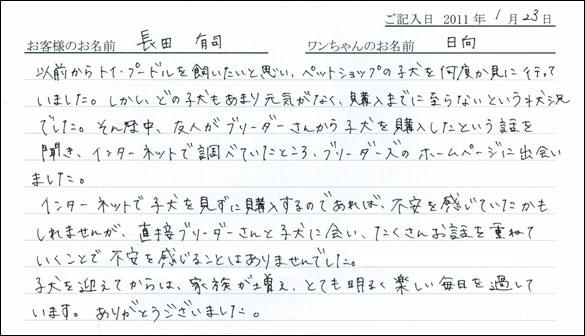 ご記入日 2011年 1月23日
お客様のお名前 長田 有司 ワンちゃんのお名前 日向
以前からトイ・プードルを飼いたいと思い、ペットショップの子犬を何度か見に行って
いました。しかし、どの子犬もあまり元気がなく、購入までに至らないという状況
でした。そんな中、友人がブリーダーさんから子犬を購入したという話を
聞き、インターネットで調べていたところ、ブリーダーズのホームページに出会い
ました。
インターネットで子犬を見ずに購入するのであれば、不安を感じていたかも
しれませんが、直接ブリーダーさんと子犬に会い、たくさんお話を重ねて
いくことで不安を感じることはありませんでした。
子犬を迎えてからは、家族が増え、とても明るく楽しい毎日を過して
います。ありがとうございました。